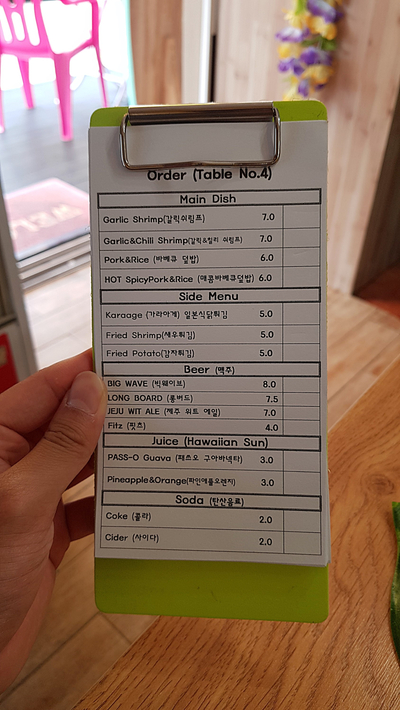 Order (Table No.4)
Main Dish
Garlic Shrimp(갈릭쉬림프) 7.0
Garlic&Chili Shrimp(갈릭&칠리 쉬림프) 7.0
Pork&Rice (바베큐 덮밥) 6.0
HOT SpicyPork&Rice (매콤바베큐덮밥) 6.0
Side Menu
Karaage (가라아게) 일본식닭튀김 5.0
Fried Shrimp(새우튀김) 5.0
Fried Potato(감자튀김) 5.0
Beer (맥주)
BIG WAVE (빅웨이브) 8.0
LONG BOARD (롱버드) 7.5
JEJU WIT ALE (제주 위트 에일) 7.0
Fitz (핏츠) 4.0
Juice (Hawaiian Sun)
PASS-O Guava (패쓰오 구아바넥타) 3.0
Pineapple&Orange(파인애플오렌지) 3.0
Soda (탄산음료)
Coke (콜라) 2.0
Cider (사이다) 2.0